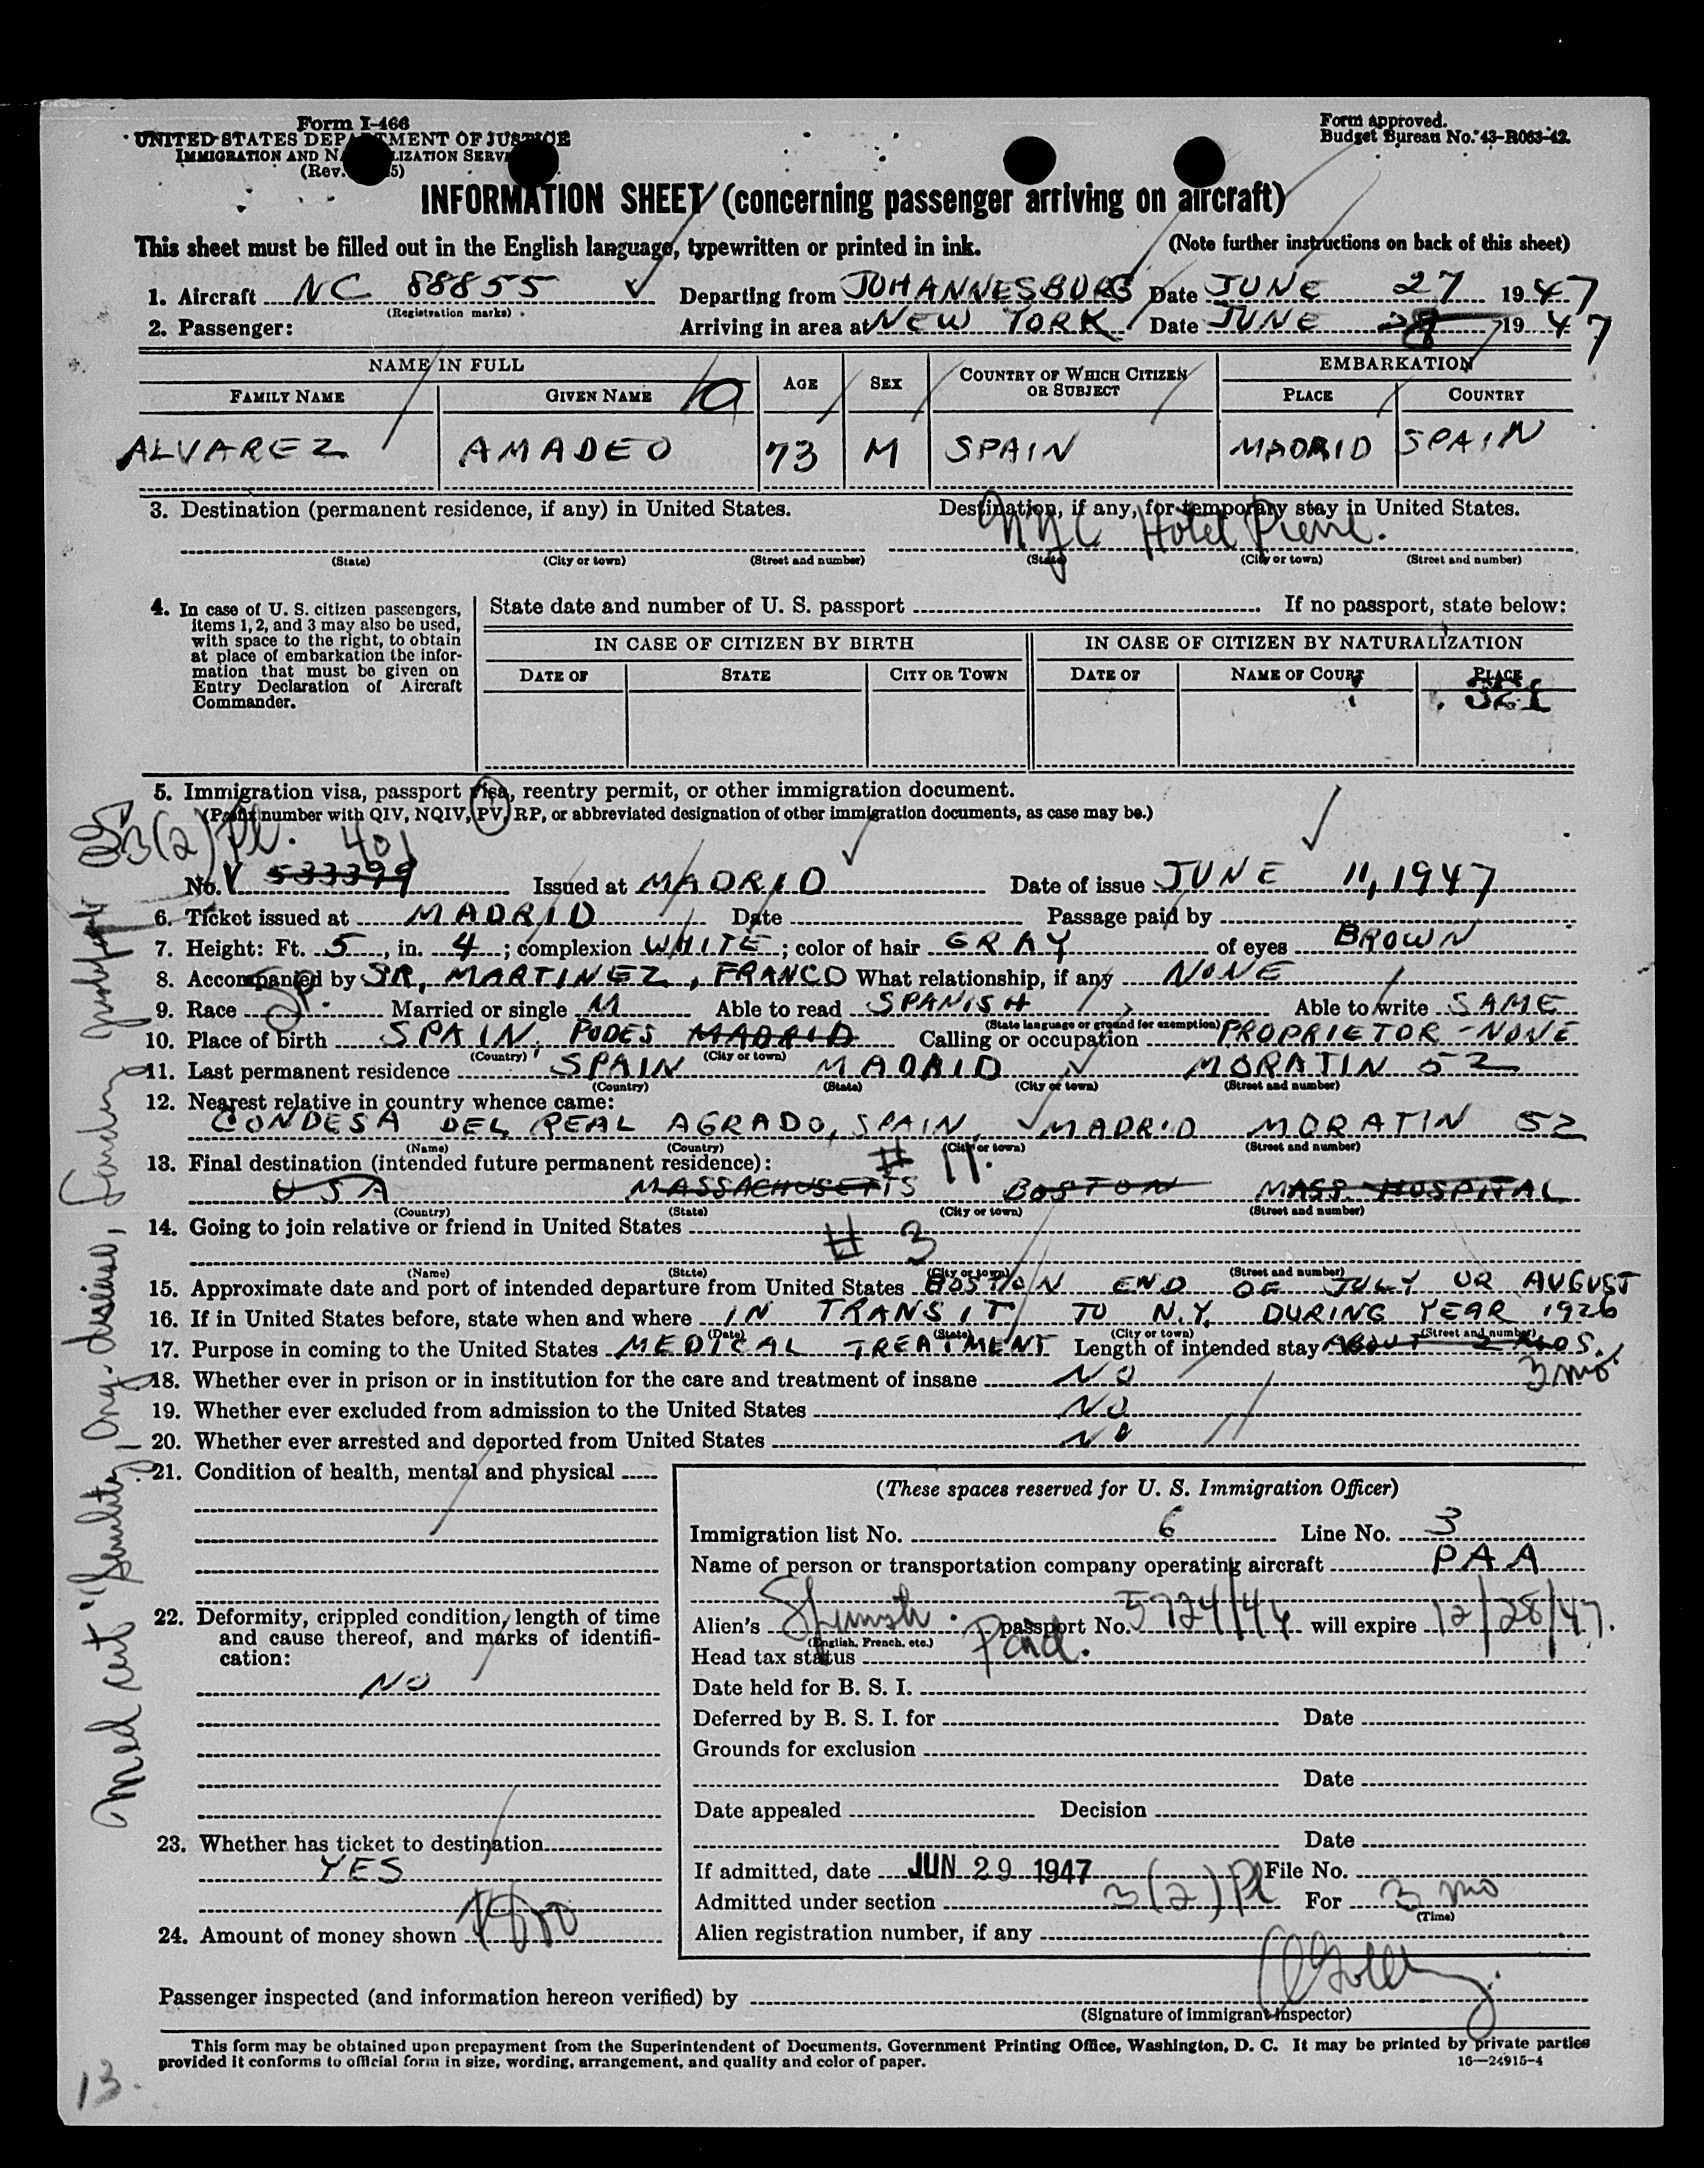 Form I-466
UNITED STATES DEPARTMENT OF JUSTICE
IMMIGRATION AND NATURALIZATION SERVICE
(Rev. 5)
Form approved.
Budget Bureau No. 43-R063-42.
INFORMATION SHEET (concerning passenger arriving on aircraft)
This sheet must be filled out in the English language, typewritten or printed in ink. (Note further instructions on back of this sheet)
1. Aircraft NC 88855 Departing from JOHANNESBURG Date JUNE 27 1947
(Registration marks)
2. Passenger: Arriving in area at NEW YORK Date JUNE 1947
NAME IN FULL AGE SEX COUNTRY OF WHICH CITIZEN OR SUBJECT EMBARKATION
FAMILY NAME GIVEN NAME PLACE COUNTRY
ALVAREZ AMADEO 73 M SPAIN MADRID SPAIN
3. Destination (permanent residence, if any) in United States. Destination, if any, for temporary stay in United States.
NYC Hotel Pierre.
(State) (City or town) (Street and number) (State) (City or town) (Street and number)
4. In case of U. S. citizen passengers, items 1, 2, and 3 may also be used, with space to the right, to obtain at place of embarkation the information that must be given on Entry Declaration of Aircraft Commander.
State date and number of U. S. passport If no passport, state below:
IN CASE OF CITIZEN BY BIRTH IN CASE OF CITIZEN BY NATURALIZATION
DATE OF STATE CITY OR TOWN DATE OF NAME OF COURT PLACE
5. Immigration visa, passport visa, reentry permit, or other immigration document.
(Prefix number with QIV, NQIV, PV, RP, or abbreviated designation of other immigration documents, as case may be.)
3(2) Pl. 401
No. V 533399 Issued at MADRID Date of issue JUNE 11, 1947
6. Ticket issued at MADRID Date Passage paid by
7. Height: Ft. 5, in. 4; complexion WHITE; color of hair GRAY of eyes BROWN
8. Accompanied by SR. MARTINEZ, FRANCO What relationship, if any NONE
9. Race Sp. Married or single M Able to read SPANISH Able to write SAME
(State language or ground for exemption)
10. Place of birth SPAIN, PODES MADRID Calling or occupation PROPRIETOR - NONE
(Country) (City or town)
11. Last permanent residence SPAIN MADRID MORATIN 52
(Country) (State) (City or town) (Street and number)
12. Nearest relative in country whence came:
CONDESA DEL REAL AGRADO, SPAIN, MADRID MORATIN 52
(Name) (Country) (City or town) (Street and number)
13. Final destination (intended future permanent residence): # 11.
USA MASSACHUSETTS BOSTON MASS. HOSPITAL
(Country) (State) (City or town) (Street and number)
14. Going to join relative or friend in United States
# 3
(Name) (State) (City or town) (Street and number)
15. Approximate date and port of intended departure from United States BOSTON END OF JULY OR AUGUST
16. If in United States before, state when and where IN TRANSIT TO N.Y. DURING YEAR 1926
(Date) (State) (City or town) (Street and number)
17. Purpose in coming to the United States MEDICAL TREATMENT Length of intended stay ABOUT 2 MOS.
3 mo
18. Whether ever in prison or in institution for the care and treatment of insane NO
19. Whether ever excluded from admission to the United States NO
20. Whether ever arrested and deported from United States NO
21. Condition of health, mental and physical
22. Deformity, crippled condition, length of time and cause thereof, and marks of identification:
NO
23. Whether has ticket to destination
YES
24. Amount of money shown
(These spaces reserved for U. S. Immigration Officer)
Immigration list No. 6 Line No. 3
Name of person or transportation company operating aircraft PAA
Alien's Spanish passport No. 5724/46 will expire 12/28/47.
(English, French, etc.)
Head tax status Paid.
Date held for B. S. I.
Deferred by B. S. I. for Date
Grounds for exclusion
Date
Date appealed Decision
Date
If admitted, date JUN 29 1947 File No.
Admitted under section 3(2) Pl For 3 mo
(Time)
Alien registration number, if any
Passenger inspected (and information hereon verified) by
(Signature of immigrant inspector)
This form may be obtained upon prepayment from the Superintendent of Documents, Government Printing Office, Washington, D. C. It may be printed by private parties
provided it conforms to official form in size, wording, arrangement, and quality and color of paper.
16—24915-4
13.
Med cert "Senility, Org. disease,